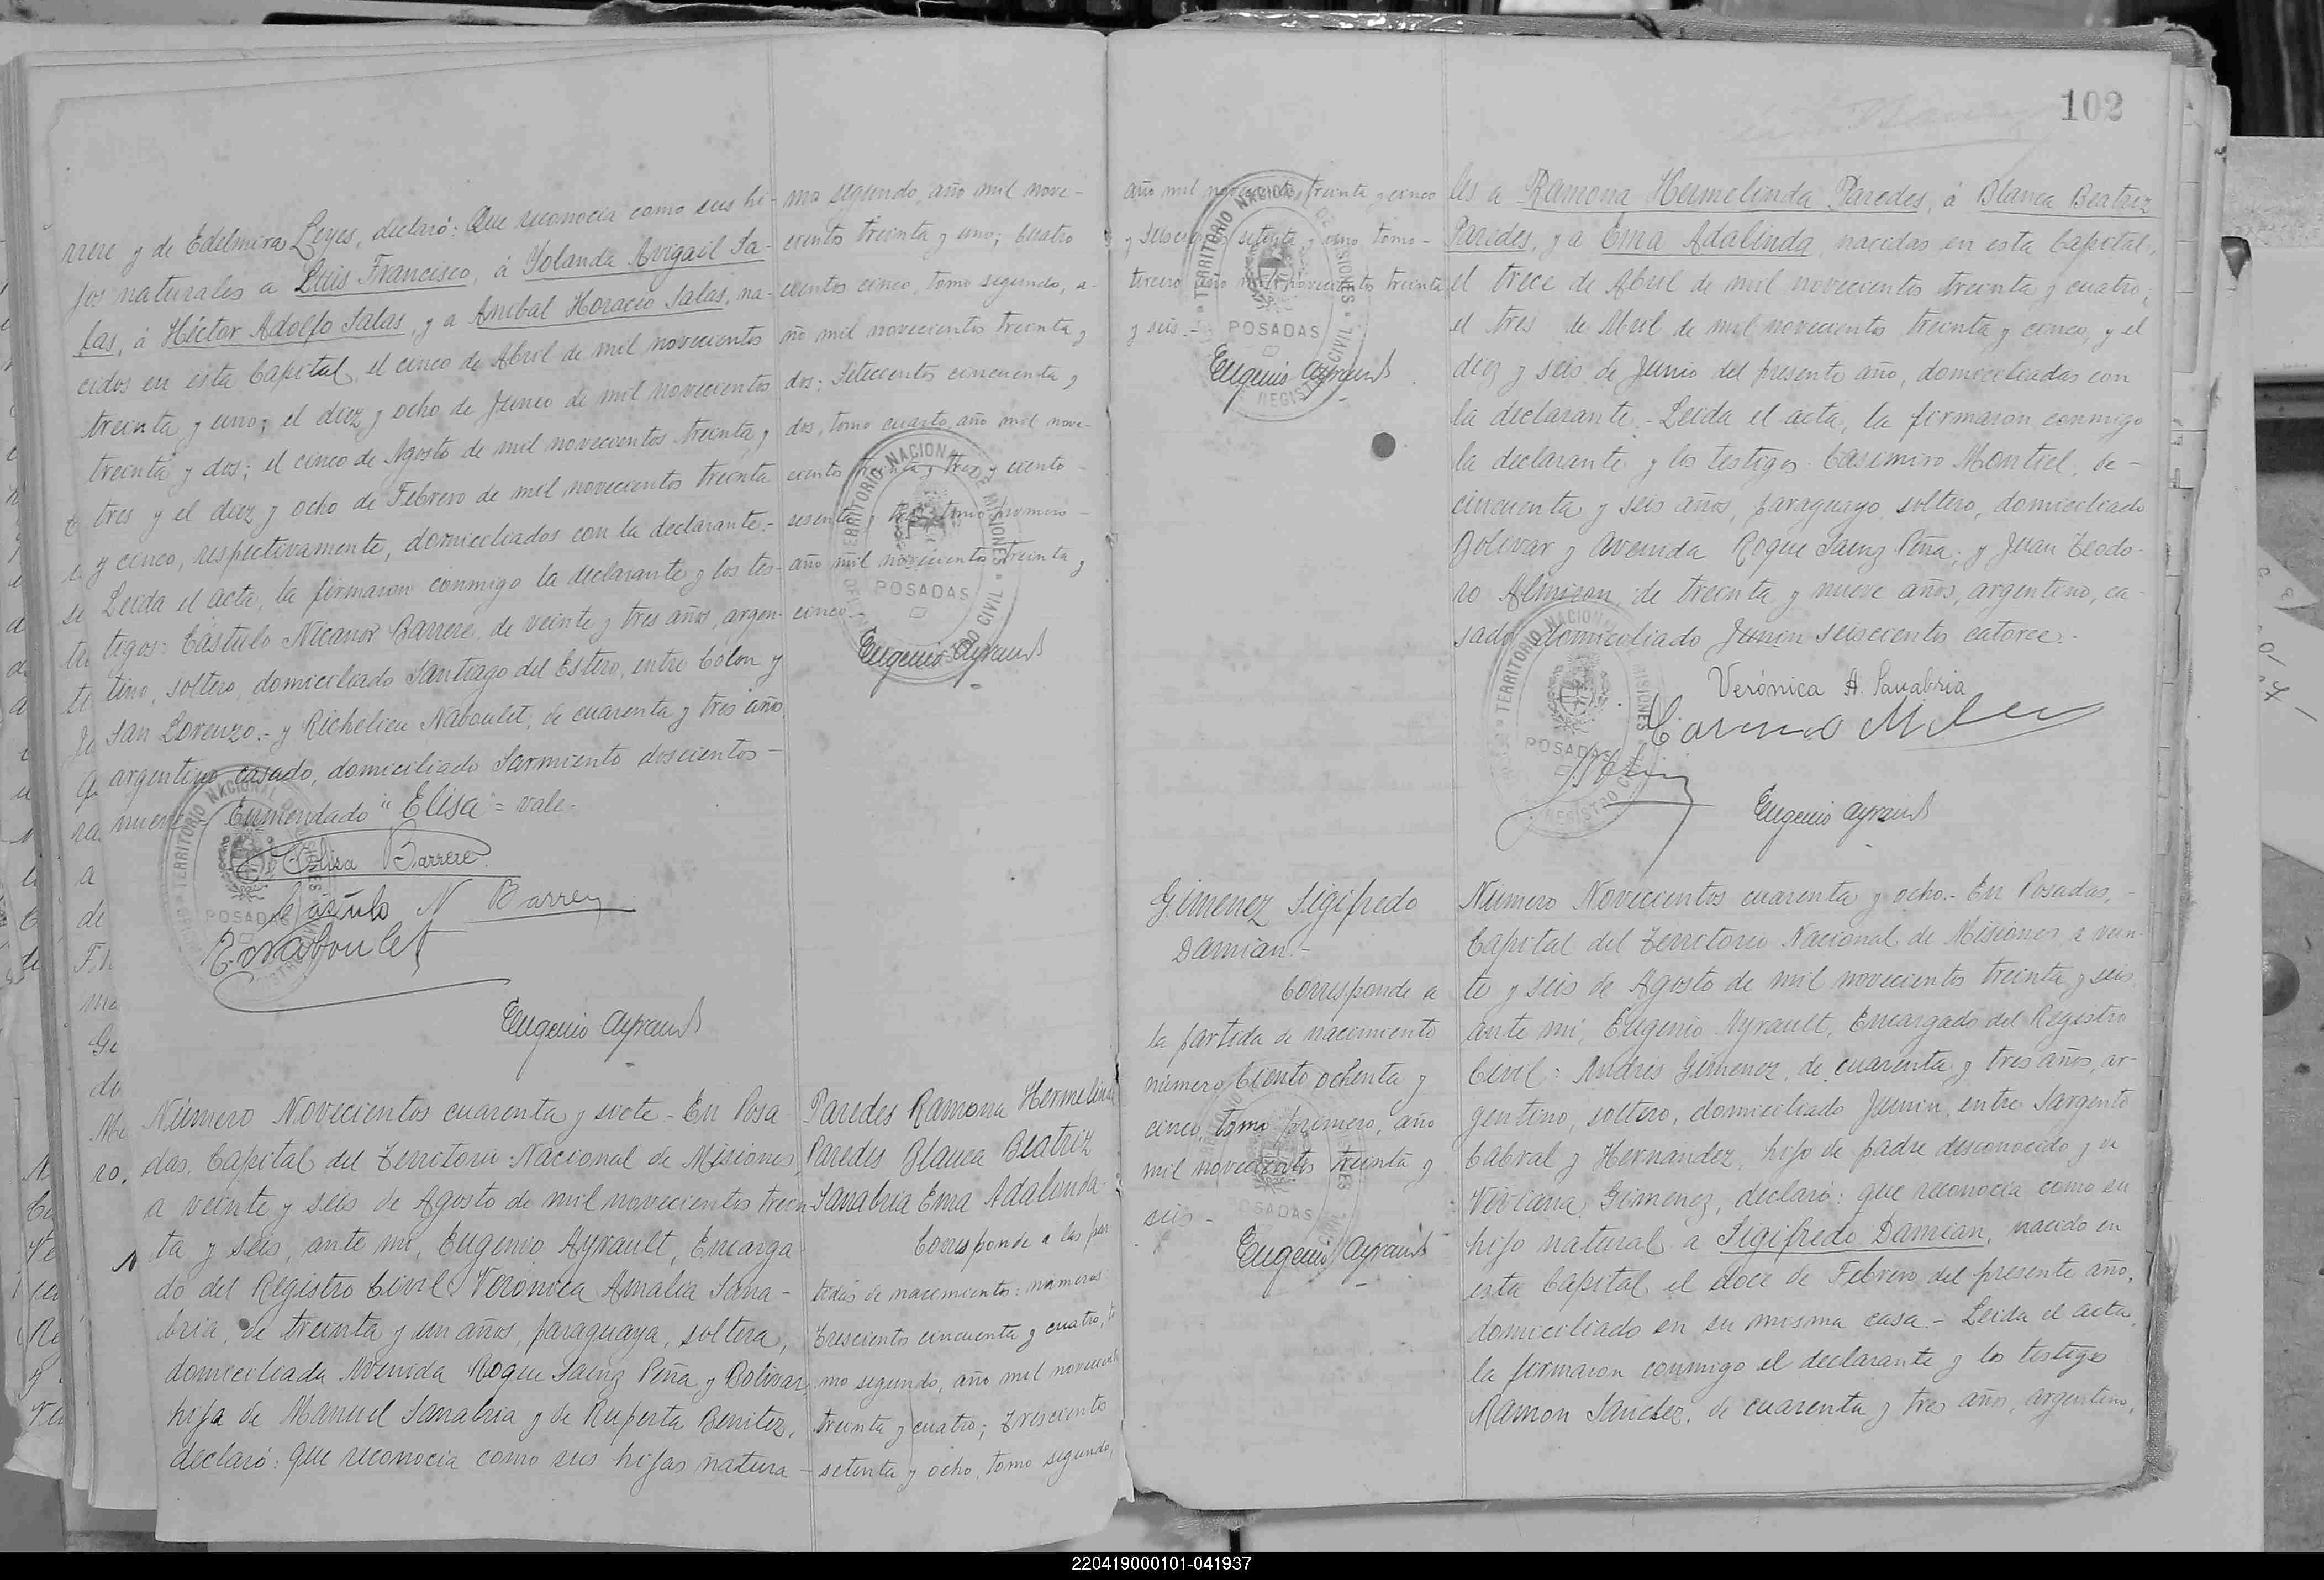 rrere y de Edelmira Leyes, declaró: Que reconocia como sus hi-
jos naturales a Luis Francisco, á Yolanda Avigail Sa-
las, á Héctor Adolfo Salas, y a Anibal Horacio Salas, na-
cidos en esta Capital, el cinco de Abril de mil novecientos
treinta y uno; el diez y ocho de Junio de mil novecientos
treinta y dos; el cinco de Agosto de mil novecientos treinta y
tres y el diez y ocho de Febrero de mil novecientos treinta
y cinco, respectivamente, domiciliados con la declarante.-
Leida el acta, la firmaron conmigo la declarante y los tes-
tigos: Cástulo Nicanor Barrere, de veinte y tres años, argen-
tino, soltero, domiciliado Santiago del Estero, entre Colon y
San Lorenzo.- y Richelieu Naboulet, de cuarenta y tres años,
argentino, casado, domiciliado Sarmiento doscientos-
nueve.- Enmendado "Elisa" = vale-
Elisa Barrere
Cástulo N Barrere
R. Naboulet
Eugenio Ayrault
mo segundo, año mil nove-
ciento treinta y uno; Cuatro
cientos cinco, tomo segundo, a-
ño mil novecientos treinta y
dos; Setecientos cincuenta y
dos, tomo cuarto, año mil nove-
ciento treinta y tres y ciento-
sesenta y tres tomo primero-
año mil novecientos treinta y
cinco.-
TERRITORIO NACIONAL DE MISIONES
POSADAS
REGISTRO CIVIL
Eugenio Ayrault
Número Novecientos cuarenta y siete.- En Posa
das, Capital del Territorio Nacional de Misiones,
a veinte y seis de Agosto de mil novecientos trein-
ta y seis, ante mi, Eugenio Ayrault, Encarga
do del Registro Civil: Verónica Amalia Sana-
bria, de treinta y un años, paraguaya, soltera,
domiciliada Avenida Roque Saenz Peña y Bolivar,
hija de Manuel Sanabria y de Ruperta Benitez,
declaró: que reconocia como sus hijas natura-
Paredes Ramona Hermelinda
Paredes Blanca Beatriz
Sanabria Ema Adalinda
Corresponde a las par
tidas de nacimientos: números
Trescientos cincuenta y cuatro, to
mo segundo, año mil novecientos
treinta y cuatro; Trescientos
setenta y ocho, tomo segundo,
102
año mil novecientos treinta y cinco
y Seiscientos setenta y uno, tomo-
tercero año mil novecientos treinta
y seis.-
TERRITORIO NACIONAL DE MISIONES
POSADAS
REGISTRO CIVIL
Eugenio Ayrault
les a Ramona Hermelinda Paredes, á Blanca Beatriz
Paredes, y a Ema Adalinda, nacidas en esta Capital,
el trece de Abril de mil novecientos treinta y cuatro;
el tres de Abril de mil novecientos treinta y cinco, y el
diez y seis de Junio del presente año, domiciliadas con
la declarante.- Leida el acta, la firmaron conmigo
la declarante y los testigos: Casimiro Montiel, de-
cincuenta y seis años, paraguayo, soltero, domiciliado
Bolivar y Avenida Roque Saenz Peña; y Juan Teodo-
ro Almiron, de treinta y nueve años, argentino, ca-
sado, domiciliado Junin seiscientos catorce.-
Verónica A. Sanabria
TERRITORIO NACIONAL DE MISIONES
POSADAS
REGISTRO CIVIL
Eugenio Ayrault
Gimenez Sigifredo
Damian.-
Corresponde a
la partida de nacimiento
número Ciento ochenta y
cinco, tomo primero, año
mil novecientos treinta y
seis-
Eugenio Ayrault
Número Novecientos cuarenta y ocho.- En Posadas,-
Capital del Territorio Nacional de Misiones, a vein-
te y seis de Agosto de mil novecientos treinta y seis
ante mi, Eugenio Ayrault, Encargado del Registro
Civil: Andrés Gimenez, de cuarenta y tres años, ar-
gentino, soltero, domiciliado Junin, entre Sargento
Cabral y Hernandez, hijo de padre desconocido y de
Viviana Gimenez, declaró: que reconocia como su
hijo natural a Sigifredo Damian, nacido en
esta Capital el doce de Febrero del presente año,
domiciliado en su misma casa.- Leida el acta,
la firmaron conmigo el declarante y los testigos
Ramon Sanchez, de cuarenta y tres años, argentino,
220419000101-041937